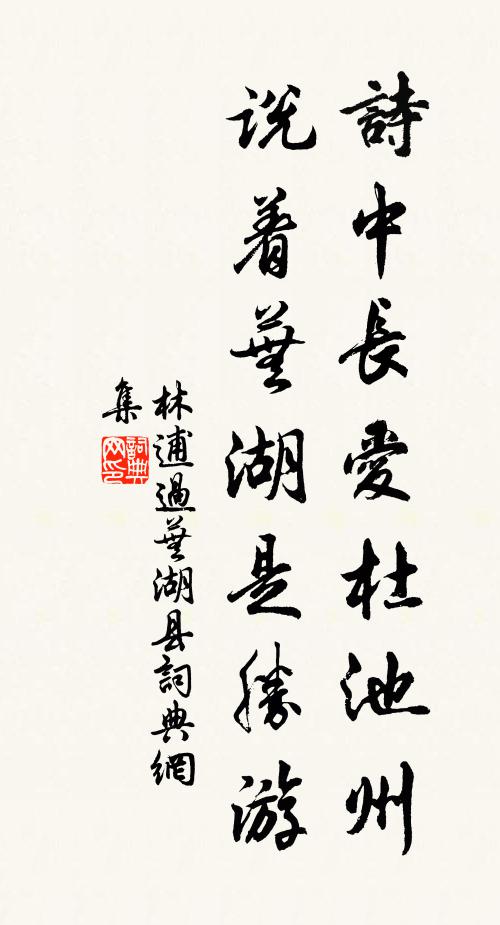 詩中長愛杜池州
説着蕪湖是勝游
林逋過蕪湖县詞典網
集
詞典網印